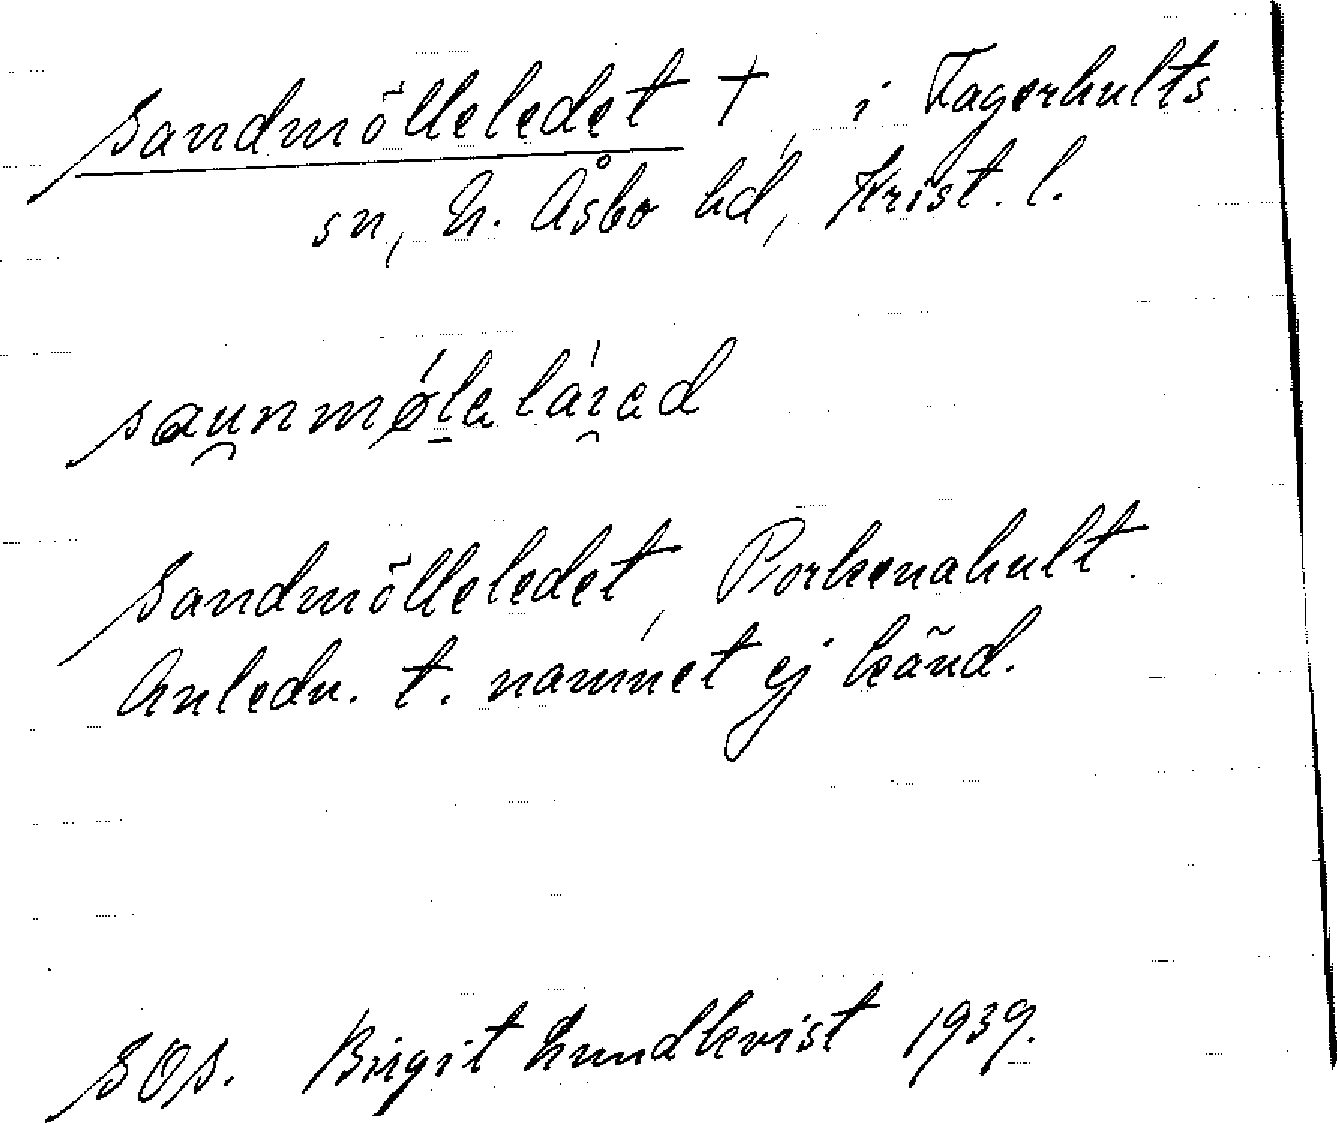 Sandmölleledet †, i Fagerhults
sn, N. Åsbo hd, Krist. l.
Sandmölleledet, Porkenahult.
Anledn. t. namnet ej känd.
SOS. Birgit Lundkvist 1939.